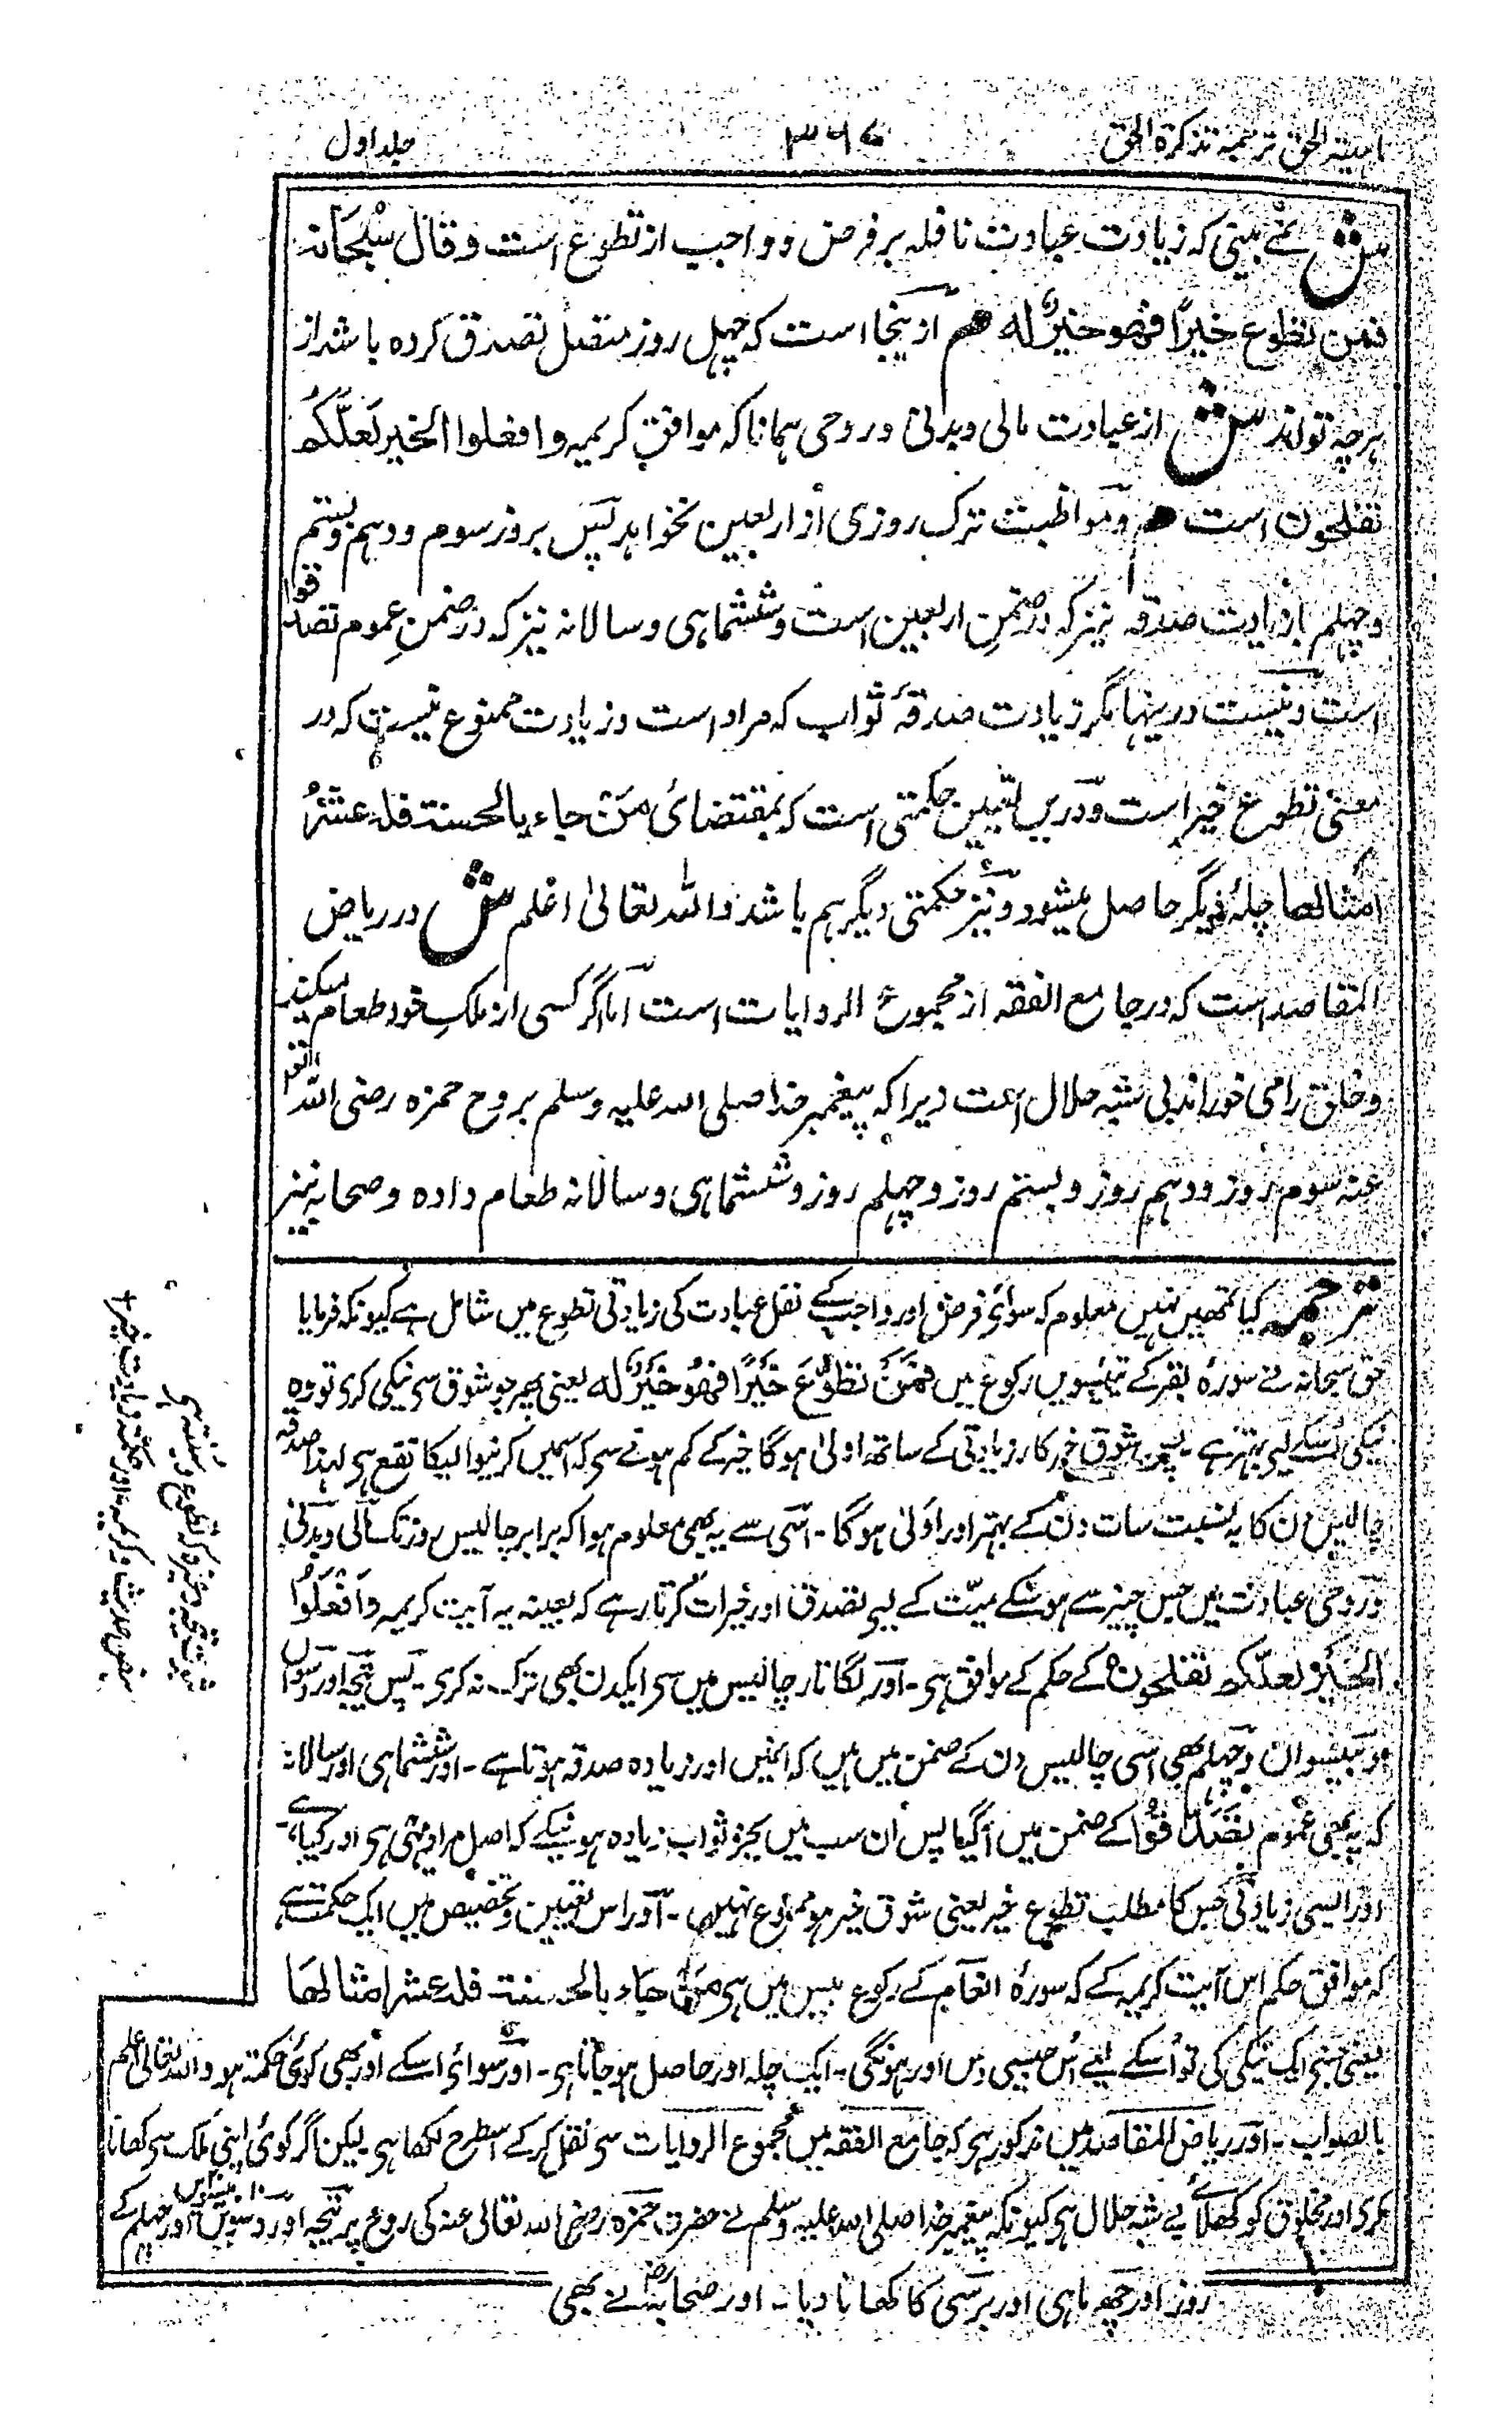 ترجمہ تذکرۃ الحق
۳۶۷
جلد اول
ش نمے بینی کہ زیادت عبادت نافلہ بر فرض و واجب از تطوع است و قال سبحانہ
فمن تطوع خیرًا فهو خیرٌ له هم ازینجا است کہ چہل روز متصل تصدق کردہ باشد از
ہرچہ تواند ش از عبادت مالی و بدنی و روحی ہمانا کہ موافق کریمہ وافعلوا الخیر لعلّکم
تفلحون است هم و مواظبت ترک روزی از اربعین نخواہد پس بروز سوم و دہم و بستم
و چہلم باز زیادت صدقہ نیز کہ در ضمنِ اربعین است و ششماہی و سالانہ نیز کہ در ضمنِ عموم تصدقوا
است و نیست درینہا مگر زیادت صدقہ ثواب کہ مراد است و زیادت ممنوع نیست کہ در
معنی تطوع خیر است و درین تعیین حکمتی است کہ بمقتضائ من جاء بالحسنة فله عشرُ
امثالها چلۂ دیگر حاصل میشود و نیز حکمتی دیگر ہم باشد واللہ تعالیٰ اعلم ش در ریاض
المقاصد است کہ در جامع الفقہ از مجموع الروایات است اما اگر کسی از ملکِ خود طعام میکند
و خلق را می خوراند بی شبہ حلال است زیرا کہ پیغمبر خدا صلی اللہ علیہ وسلم بروح حمزہ رضی اللہ تعالی
عنہ سوم روز و دہم روز و بستم روز و چہلم روز و ششماہی و سالانہ طعام دادہ و صحابہ نیز
ترجمہ کیا تمھیں نہیں معلوم کہ سوائ فرض اور واجب کے نفل عبادت کی زیادتی تطوع میں شامل ہے کیونکہ فرمایا
حق سبحانہ نے سورۂ بقر کے تیئسویں رکوع میں فَمَنْ تَطَوَّعَ خَیْرًا فَهُوَ خَیْرٌ لَه یعنی پھر جو شوق سی نیکی کری تو وہ
نیکی اسکے لیے بہتر ہے پس شوق خیر کا زیادتی کے ساتھ اولیٰ ہوگا خیر کے کم ہونے سی کہ اسمیں کرنیوالیکا نفع ہی لہذا صدقہ
چالیس دن کا بہ نسبت سات دن کے بہتر اور اولیٰ ہوگا ۔ اسی سے یہ بھی معلوم ہوا کہ برابر چالیس روز تک مالی و بدنی
و روحی عبادت میں جس چیز سے ہو سکے میّت کے لیے تصدق اور خیرات کرتا رہے کہ بعینہ یہ آیت کریمہ وَافْعَلُوا
الْخَیْرَ لعلّکم تفلحون کے حکم کے موافق ہی ۔ اور لگاتار چالیس میں سی ایکدن بھی ترک نہ کری ۔ پس تیجہ اور دسواں
اور بیسواں و چہلم بھی اسی چالیس دن کے ضمن میں ہیں کہ انمیں اور زیادہ صدقہ ہوتا ہے ۔ اور ششماہی اور سالانہ
کہ یہ بھی عموم تَصَدَّقُوْا کے ضمن میں آگیا پس ان سب میں بجز ثواب زیادہ ہونیکے کہ اصل مراد یہی ہی اور کیا ہے
اور ایسی زیادتی جس کا مطلب تطوع خیر یعنی شوق خیر ہو ممنوع نہیں ۔ اور اس تعیین و تخصیص میں ایک حکمت ہے
کہ موافق حکم اس آیت کریمہ کے کہ سورۂ انعام کے رکوع بیس میں ہی مَنْ جاء بالحسنة فله عشر امثالها
یعنی جسنے ایک نیکی کی تو اسکے لیے اُس جیسی دس اور ہونگی ۔ ایک چلہ اور حاصل ہو جاتا ہی ۔ اور سوائ اسکے اور بھی کوئ حکمۃ ہو واللہ تعالیٰ اعلم
بالصواب ۔ اور ریاض المقاصد میں مذکور ہی کہ جامع الفقہ میں مجموع الروایات سی نقل کر کے اسطرح لکھا ہی لیکن اگر کوئ اپنی ملک سی کھانا
کری اور مخلوق کو کھلائے بے شبہ حلال ہی کیونکہ پیغمبر خدا صلی اللہ علیہ وسلم نے حضرت حمزہ رضی اللہ تعالیٰ عنہ کی روح پر تیجہ اور دسویں اور بیسویں اور چہلم کے
روز اور چھ ماہی اور برسی کا کھانا دیا ۔ اور صحابہؓ نے بھی